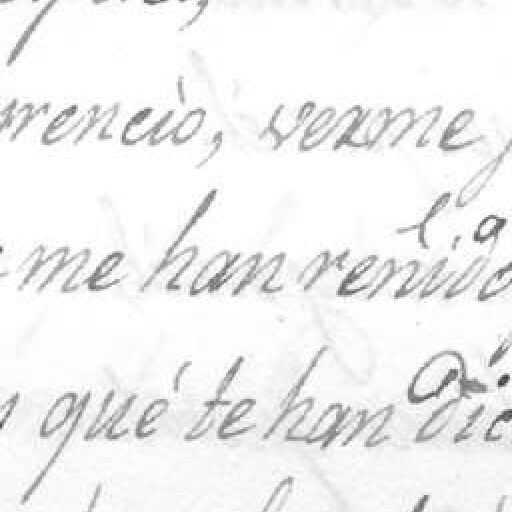 rrenciò, verme
me han reñido
qué te han dic